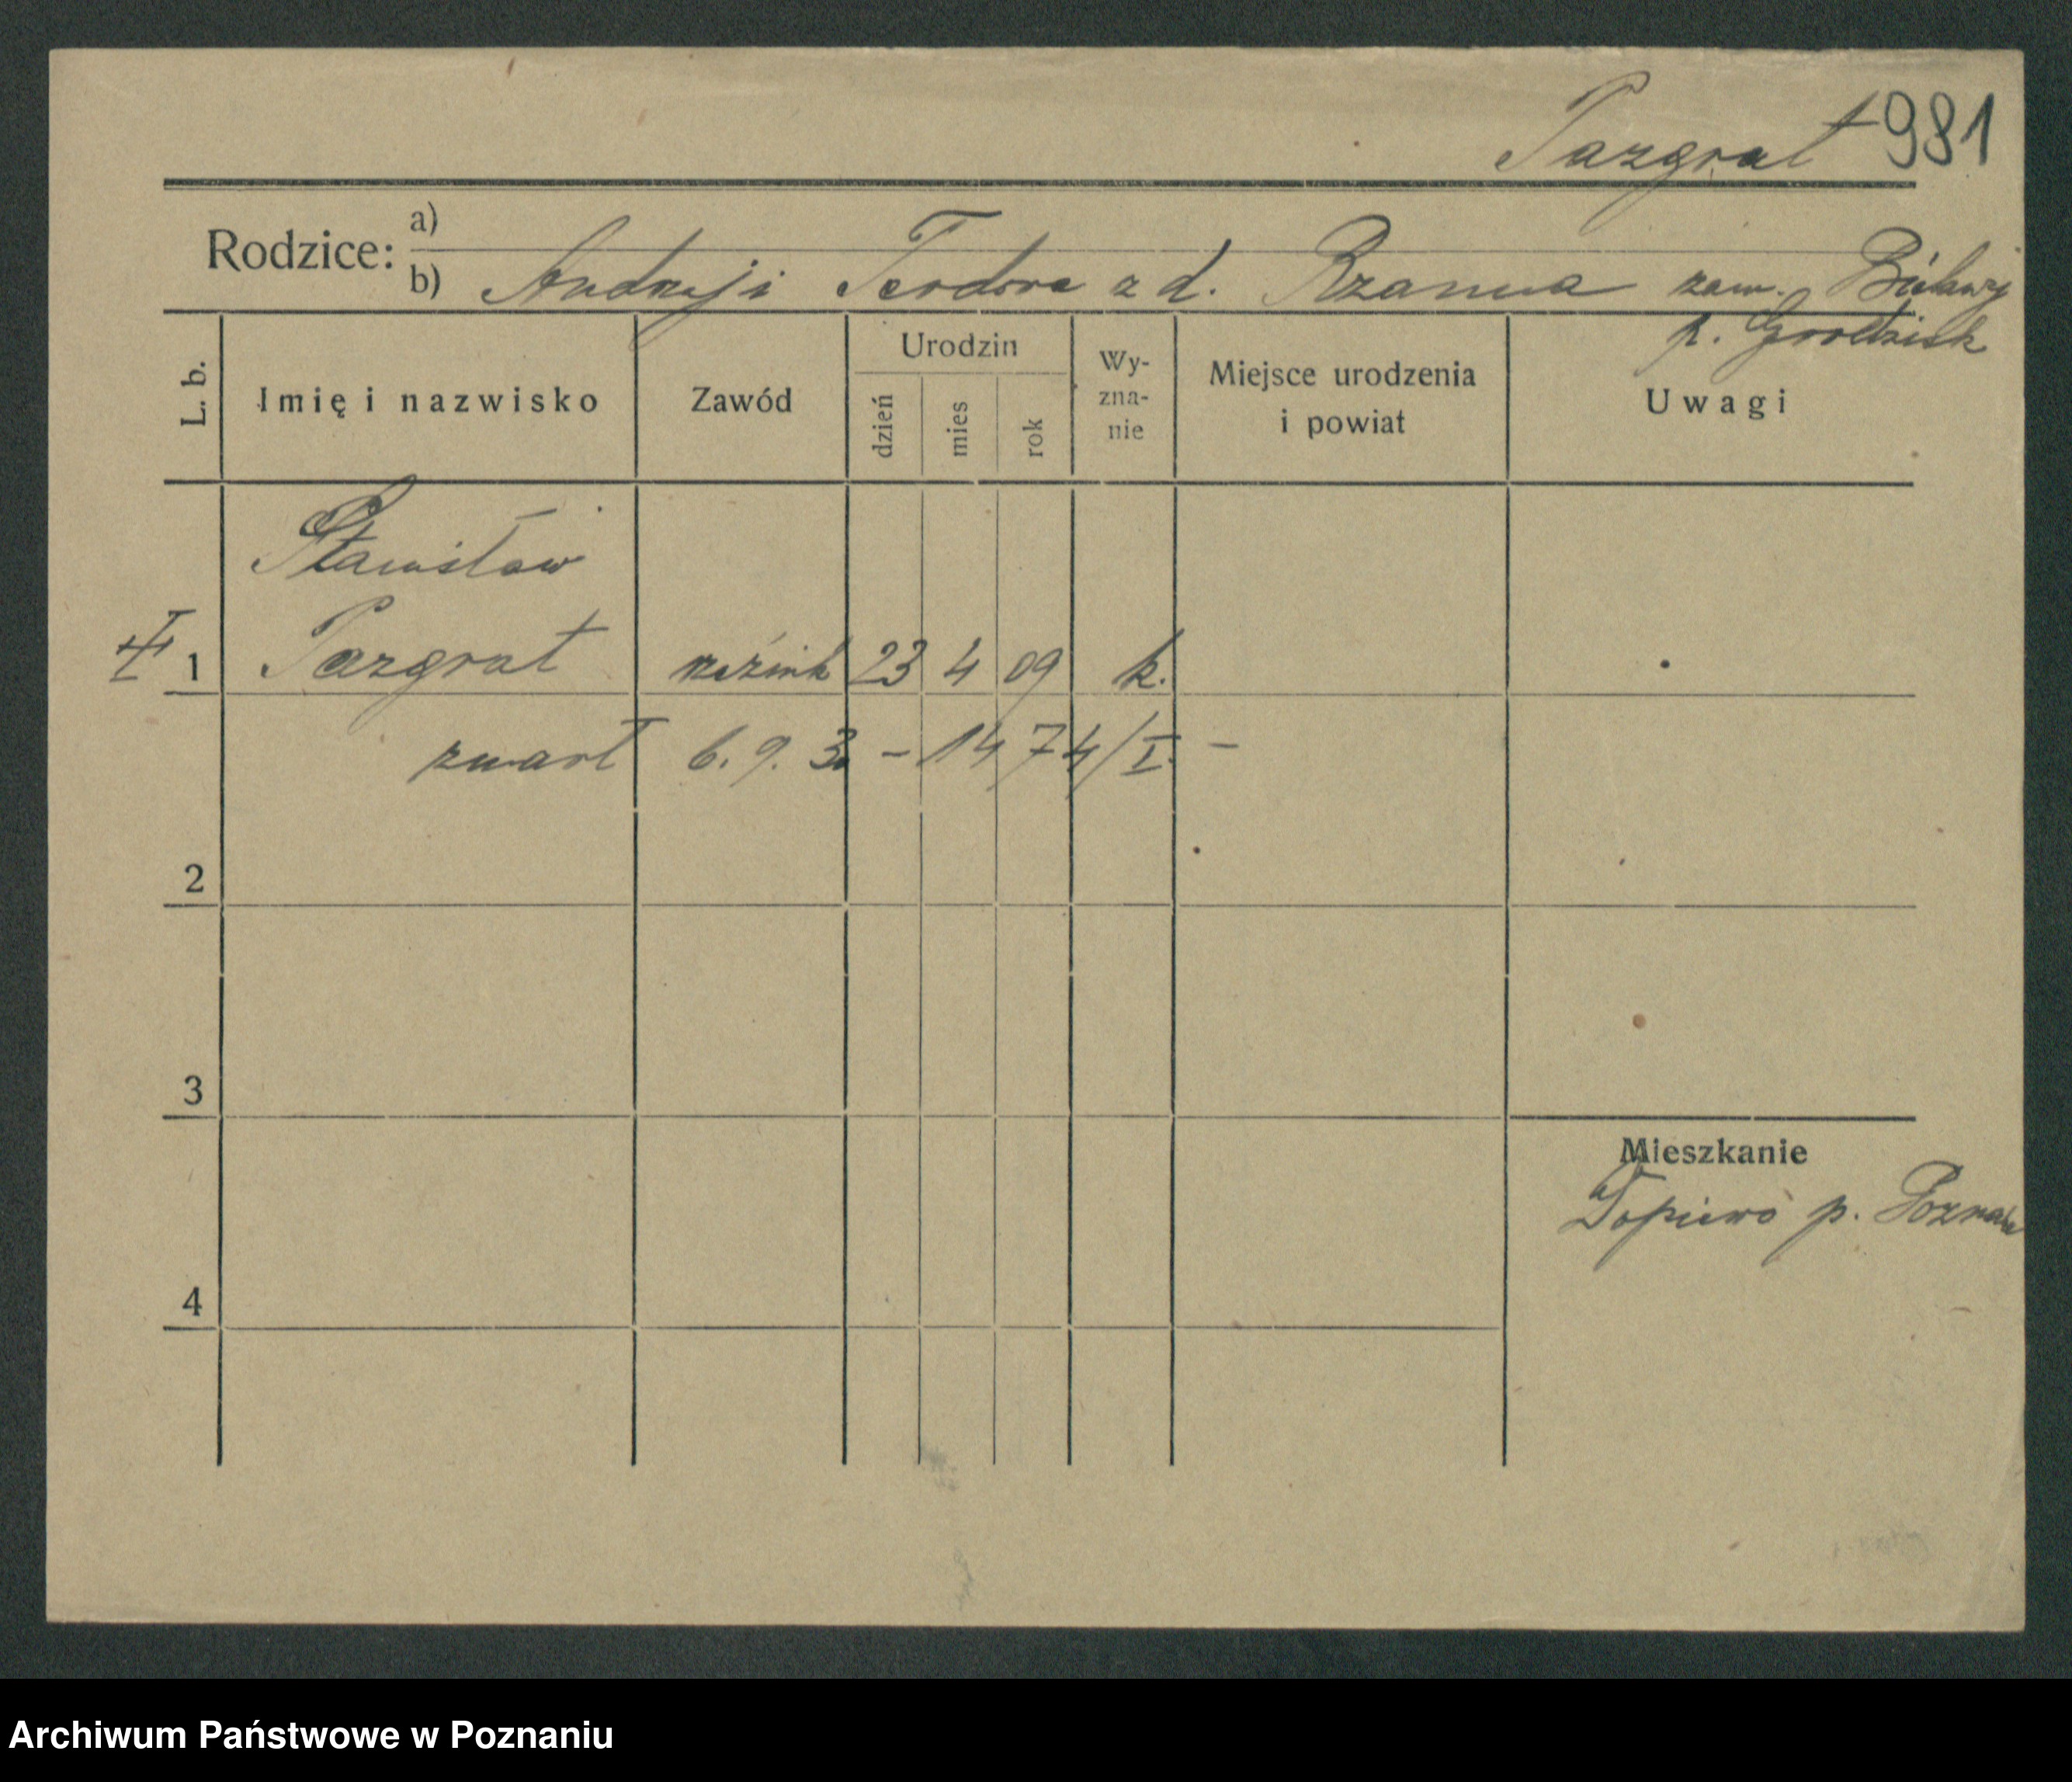 Pazgrat 981
Rodzice: a)
b) Andrzej i Teodora z d. Rzanna zam. Bielawy
p. Grodzisk
L. b.
Imię i nazwisko
Zawód
Urodzin
dzień
mies
rok
Wy-
zna-
nie
Miejsce urodzenia
i powiat
Uwagi
Stanisław
1 Pazgrat rzeźnik 23 4 09 k.
zmarł 6. 9. 30 - 1474/I -
2
3
4
Mieszkanie
Dopiewo p. Poznań
Archiwum Państwowe w Poznaniu